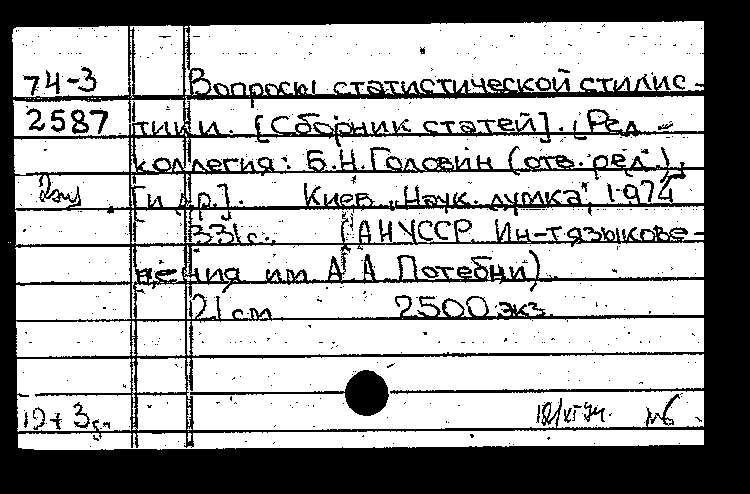 74-3 Вопросы статистической стилис-
2587 тики. [Сборник статей]. [Ред.-
коллегия: Б.Н. Головин (отв. ред.),
[и др.]. Киев „Наук. думка", 1974
331 с., (АН УССР. Ин-т языкове-
дения им А А Потебни)
21 см 2500 экз.